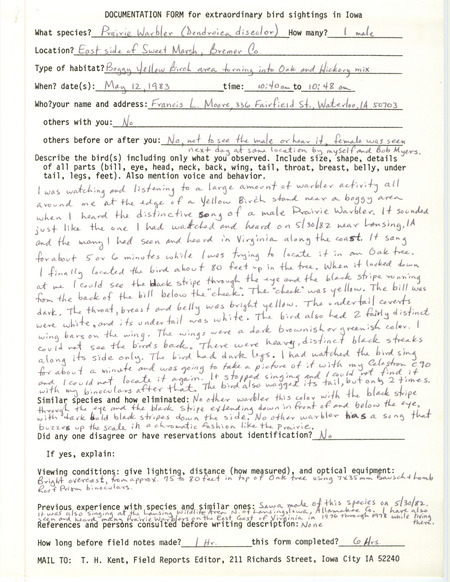 DOCUMENTATION FORM for extraordinary bird sightings in Iowa
What species? Prairie Warbler (Dendroica discolor) How many? 1 male
Location? East side of Sweet Marsh, Bremer Co.
Type of habitat? Boggy Yellow Birch area turning into Oak and Hickory mix
When? date(s): May 12, 1983 time: 10:40am to 10:48am
Who? your name and address: Francis L. Moore, 336 Fairfield St., Waterloo, IA 50703
others with you: No
others before or after you: No, not to see the male or hear it, female was seen
next day at same location by myself and Bob Myers.
Describe the bird(s) including only what you observed. Include size, shape, details
of all parts (bill, eye, head, neck, back, wing, tail, throat, breast, belly, under
tail, legs, feet). Also mention voice and behavior.
I was watching and listening to a large amount of warbler activity all
around me at the edge of a Yellow Birch stand near a boggy area
when I heard the distinctive song of a male Prairie Warbler. It sounded
just like the one I had watched and heard on 5/30/82 near Lansing, IA
and the many I had seen and heard in Virginia along the coast. It sang
for about 5 or 6 minutes while I was trying to locate it in an Oak tree.
I finally located the bird about 80 feet up in the tree. When it looked down
at me I could see the black stripe through the eye and the black stripe running
from the back of the bill below the cheek. The "cheek" was yellow. The bill was
dark. The throat, breast and belly was bright yellow. The undertail coverts
were white, and its undertail was white. The bird also had 2 fairly distinct
wing bars on the wings. The wings were a dark brownish or greenish color. I
could not see the birds back. There were heavy, distinct black streaks
along its side only. The bird had dark legs. I had watched the bird sing
for about a minute and was going to take a picture of it with my Celestron C90
and I could not locate it again. It stopped singing and I could not find it
with my binoculars after that. The bird also wagged its tail, but only 2 times.
Similar species and how eliminated: No other warbler this color with the black stripe
through the eye and the black stripe extending down in front of and below the eye,
with dark bold black stripes down the side. No other warbler has a song that
buzzes up the scale in a chromatic fashion like the Prairie.
Did any one disagree or have reservations about identification? No
If yes, explain:
Viewing conditions: give lighting, distance (how measured), and optical equipment:
Bright overcast, from approx. 75 to 80 feet in top of Oak tree using 7x35mm Bausch & Lomb
Porro Prism binoculars.
Previous experience with species and similar ones: Saw a male of this species on 5/30/82.
It was also singing at the Lansing Wildlife Area N. of Lansing, Iowa, Allamakee Co. I have also
seen and heard many Prairie Warblers on the East Coast of Virginia in 1976 through 1978 while living
there.
References and persons consulted before writing description: None
How long before field notes made? 1 Hr. this form completed? 6 Hrs.
MAIL TO: T. H. Kent, Field Reports Editor, 211 Richards Street, Iowa City IA 52240